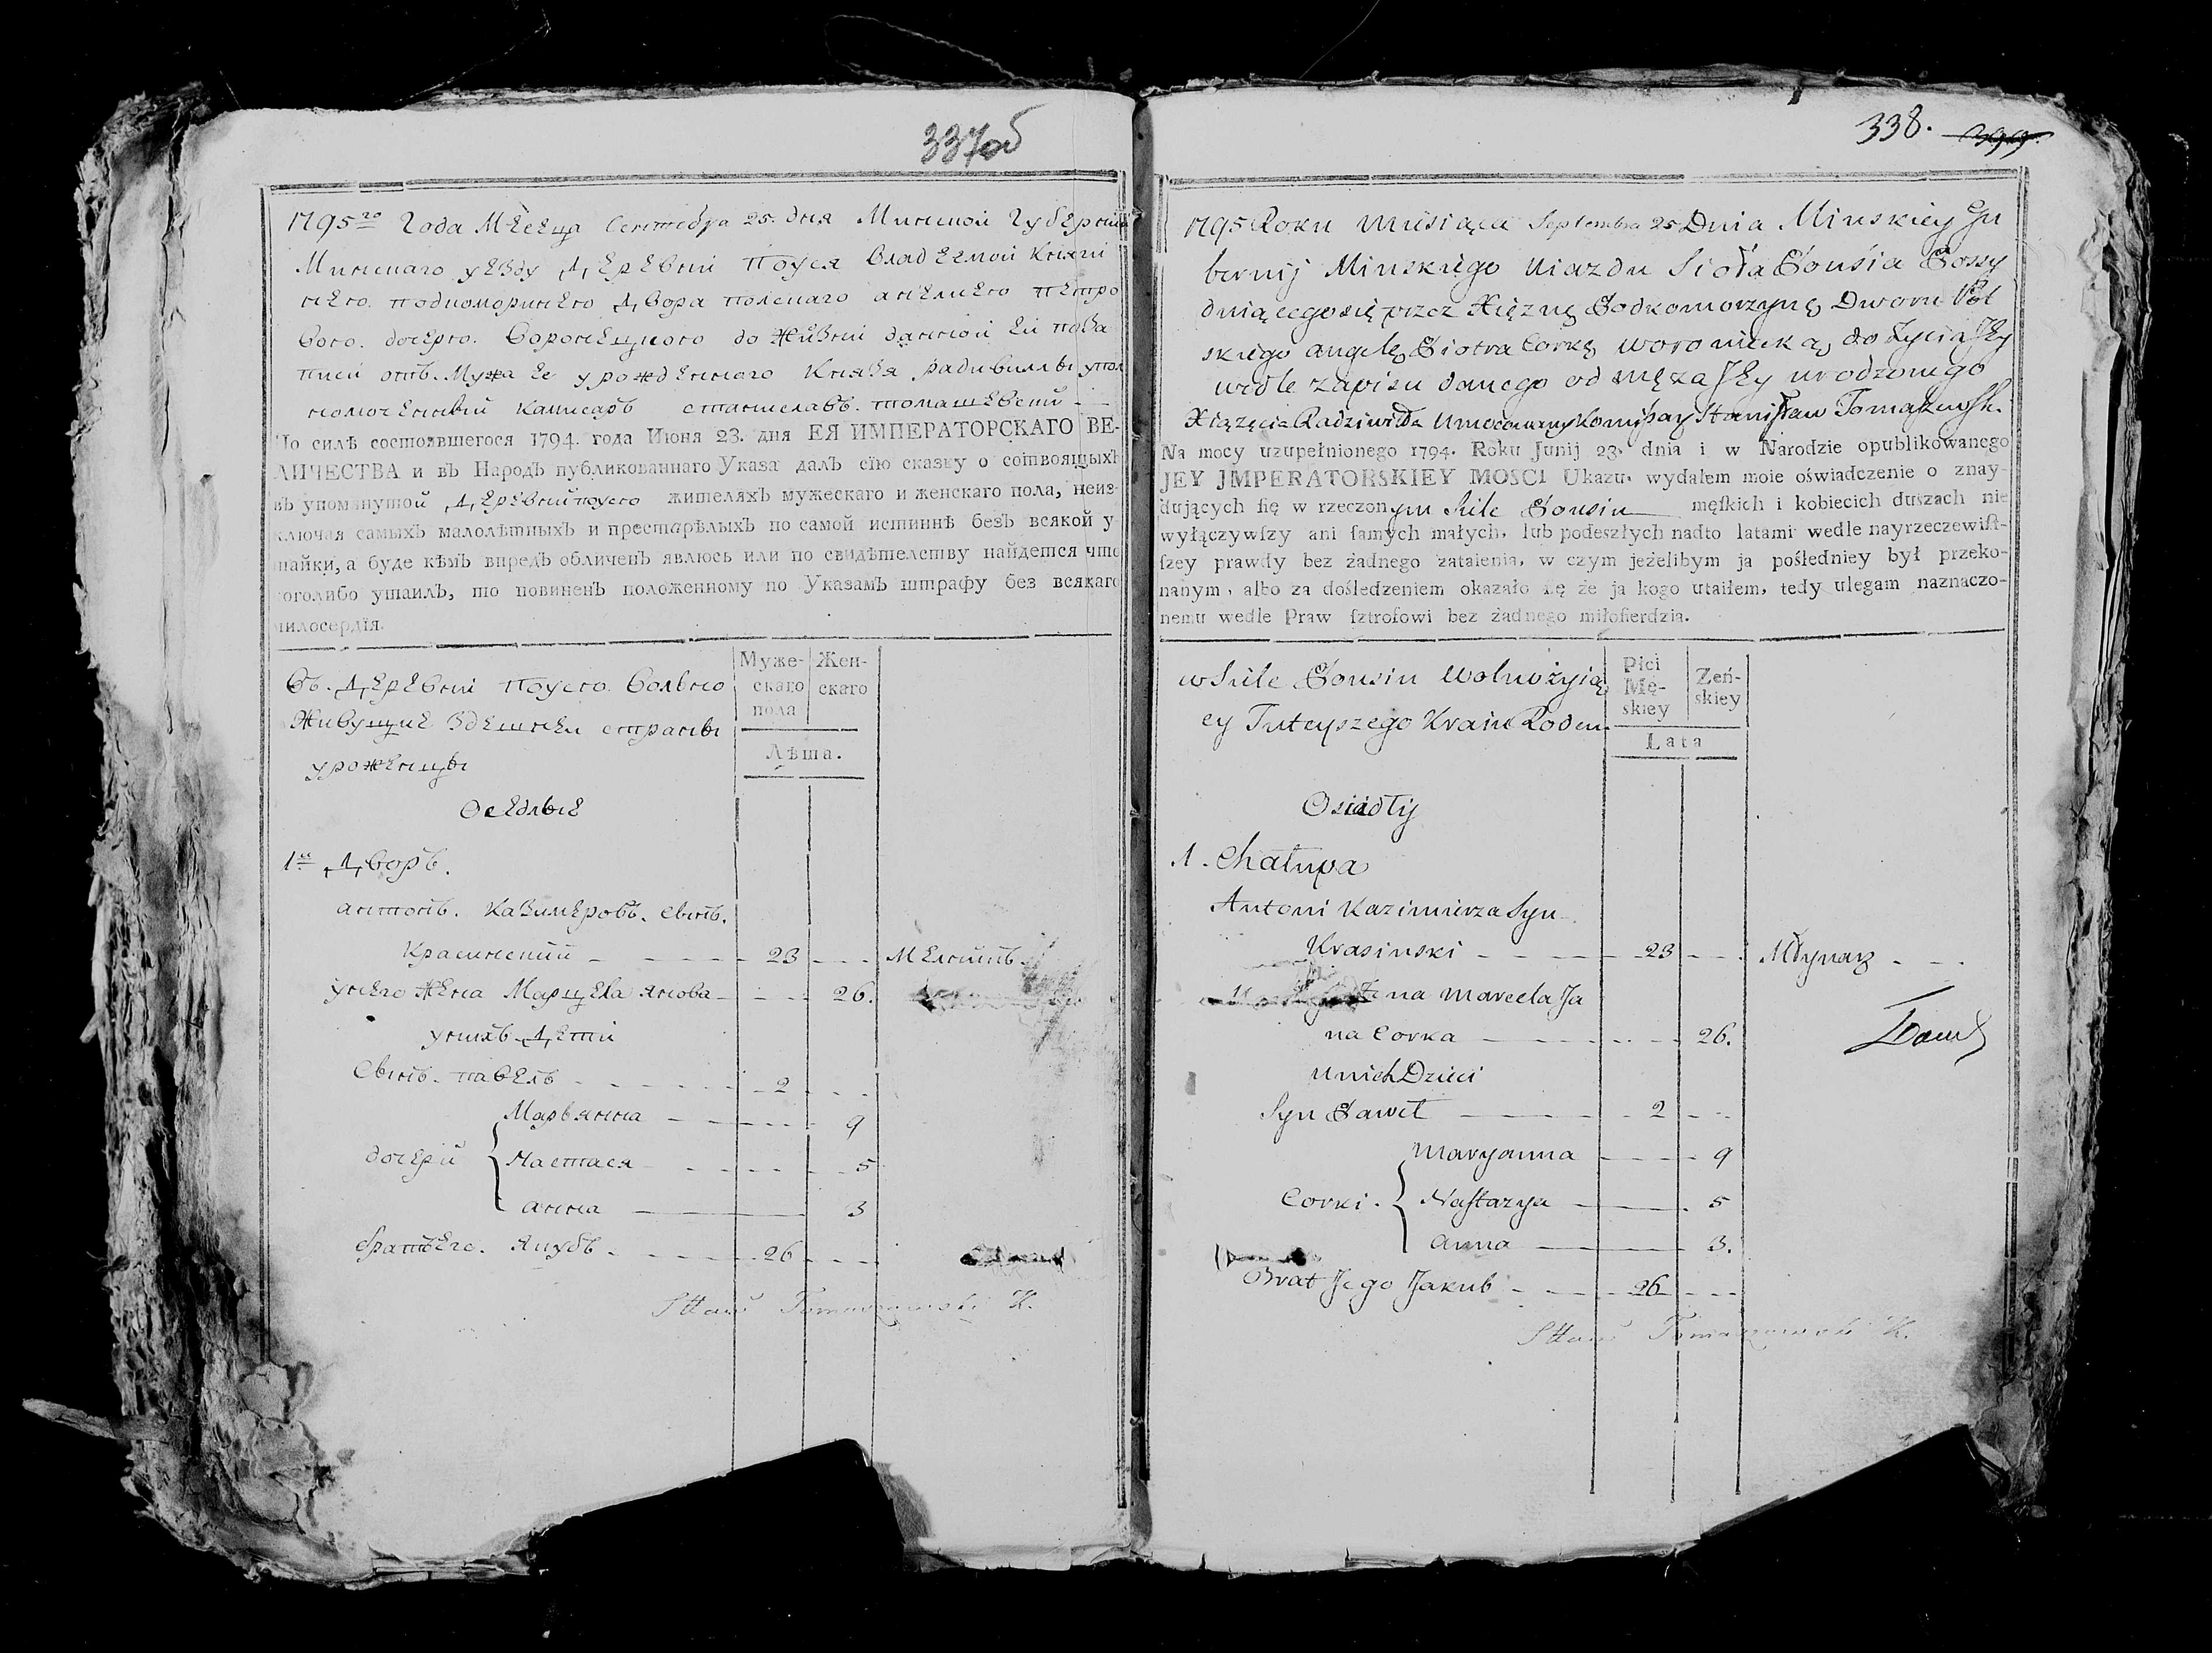 337об
1795го Года Мѣсеца Сентебра 25. дня Минской Губернии
Минскаго уезду Деревни Поуся Владеемой Княги
нею подкоморинею Двора полскаго анелиею петро
вого дочерю Воронецкого до Живни данной ей по за
писи отъ Мужа ее урожденного Князя радивилы упол
номоченный камисаръ станиславъ томашевский
По силѣ состоявшегося 1794. года Июня 23. дня ЕЯ ИМПЕРАТОРСКАГО ВЕ-
ЛИЧЕСТВА и въ Народъ публикованнаго Указа далъ сїю сказку о состоящихъ
въ упомянутой Деревни поусю жителяхъ мужескаго и женскаго пола, неиз-
ключая самыхъ малолѣтныхъ и престарѣлыхъ по самой истиннѣ безъ всякой у-
тайки, а буде кѣмъ впредъ обличенъ явлюсь или по свидѣтелству найдется что
коголибо утаилъ, то повиненъ положенному по Указамъ штрафу без всякаго
милосердїя.
Въ Деревни Поусю Вольно
Живущие Здешней страны
уроженцы
Муже-
скаго
пола
Жен-
скаго
Лѣта.
Оседлые
1й Дворъ.
антонъ. Казимеровъ. Сынъ.
Красинский 23 Мелникъ
у него Жена Марцела Янова 26.
у нихъ Дети
Сынъ. павелъ 2
Марьянна 9
дочери { Настася 5
анна 3
братъ его. Якубъ 26
SStaw Tomaszewski K.
338.
1795 Roku Miesiąca Septembra 25 Dnia Minskiey Gu
bernij Minskiego Uiazdu Sioła Pousia Possy
dniącego się przez Xiężnę Podkomorzynę Dworu Pol
skiego angelę Piotra Corkę woroniecką do Zycia Jey
wedle zapisu danego od męża Jey urodzonego
Xiązęcia Radziwiłła Umocowany Komisarz Stanisław Tomaszewsk.
Na mocy uzupełnionego 1794. Roku Junij 23. dnia i w Narodzie opublikowanego
JEY JMPERATORSKIEY MOSCI Ukazu, wydałem moie oświadczenie o znay-
dujących ſię w rzeczonym Siele Pousiu męſkich i kobiecich duszach nie
wyłączywſzy ani ſamych małych, lub podeszłych nadto latami wedle nayrzeczewiſt-
ſzey prawdy bez żadnego zataienia, w czym jeżelibym ja pośledniey był przeko-
nanym, albo za dośledzeniem okazało ſię że ja kogo utaiłem, tedy ulegam naznaczo-
nemu wedle Praw ſztrofowi bez żadnego miłoſierdzia.
w Siele Pousiu wolno żyią
cy Tuteyszego Kraiu Rodem
Płci
Mę-
skiey
Zeń-
skiey
Lata
Osiadły
1. Chałupa
Antoni Kazimierza Syn
Krasinski 23 Młynarz
Żona Marcela Ja
na Corka 26.
u nich Dzieci
Syn Paweł 2
Maryanna 9
Corki. { Nastazya 5
anna 3.
Brat Jego Jakub 26
SStaw Tomaszewski K.